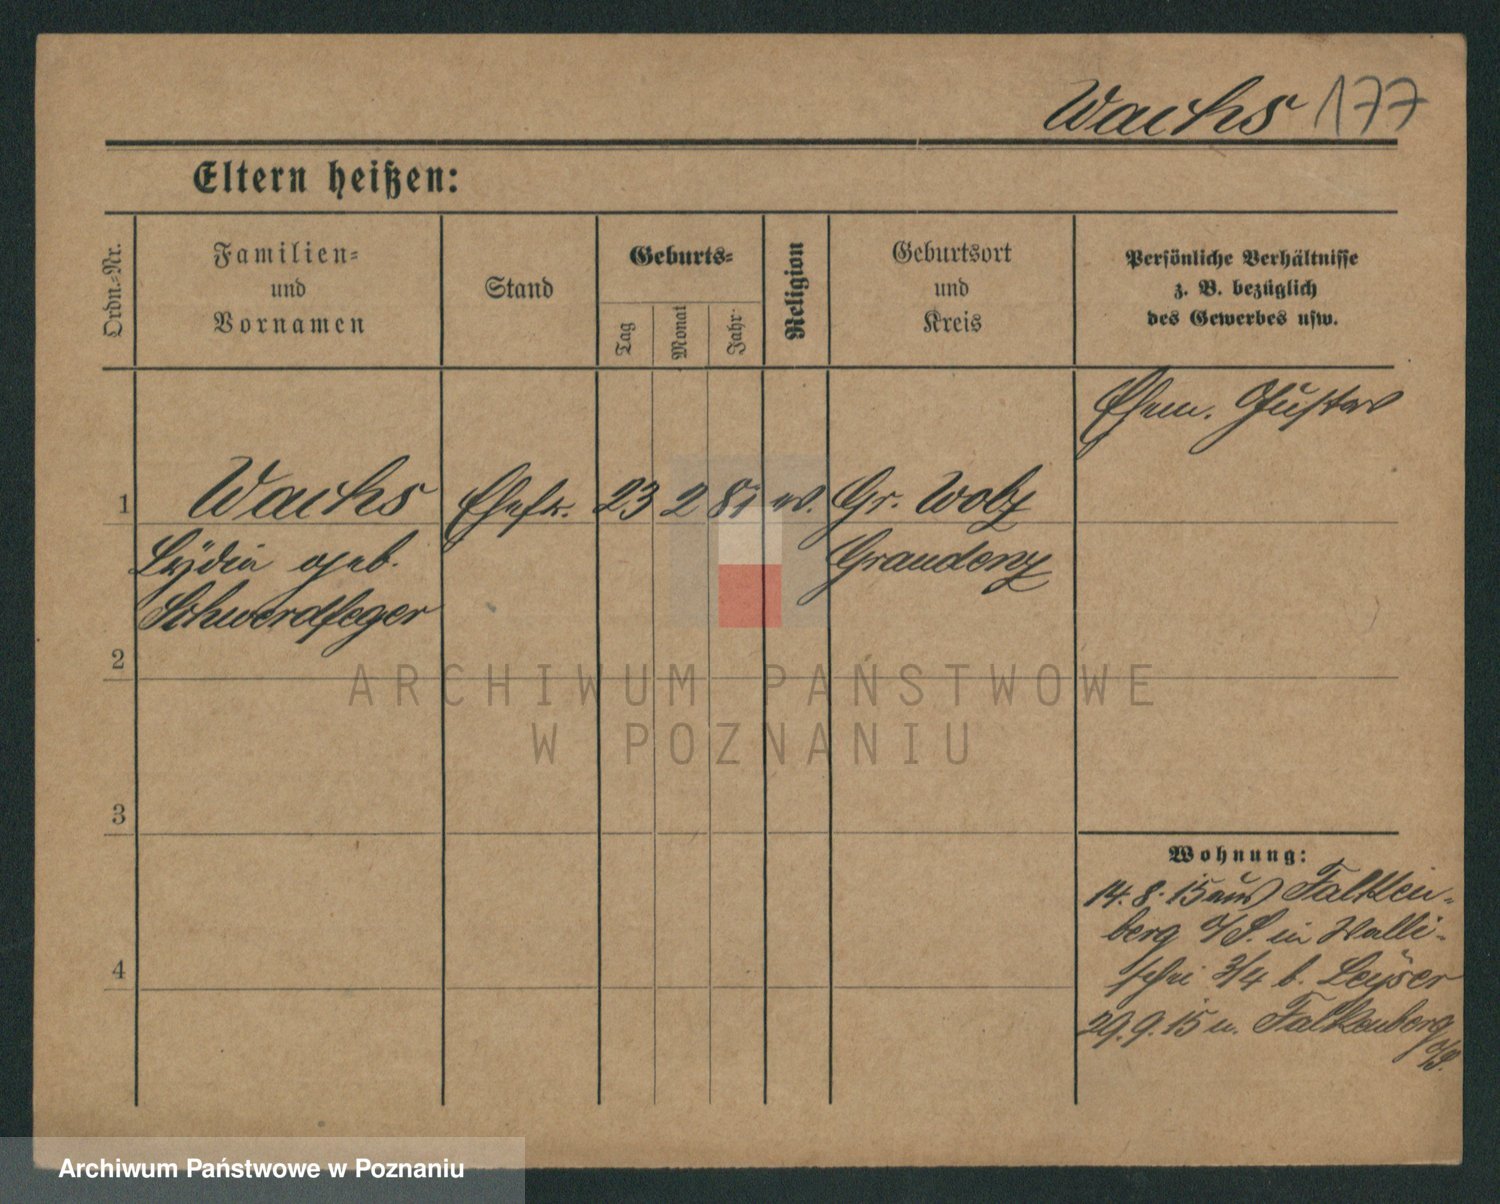 Wachs 177
Eltern heißen:
Ordn.-Nr.
Familien-
und
Vornamen
Stand
Geburts-
Tag
Monat
Jahr
Religion
Geburtsort
und
Kreis
Persönliche Verhältnisse
z. B. bezüglich
des Gewerbes usw.
Ehem. Gustav
1 Wachs Ehefr. 23 2 81 ev. Gr. Wolz
Lydia geb. Graudenz
Schwerdfeger
2
3
4
Wohnung:
14.8.15 aus Falken-
berg O/S. in Walli-
schei 3/4 b. Leyser
29.9.15 n. Falkenberg
O/S.
ARCHIWUM PAŃSTWOWE
W POZNANIU
Archiwum Państwowe w Poznaniu